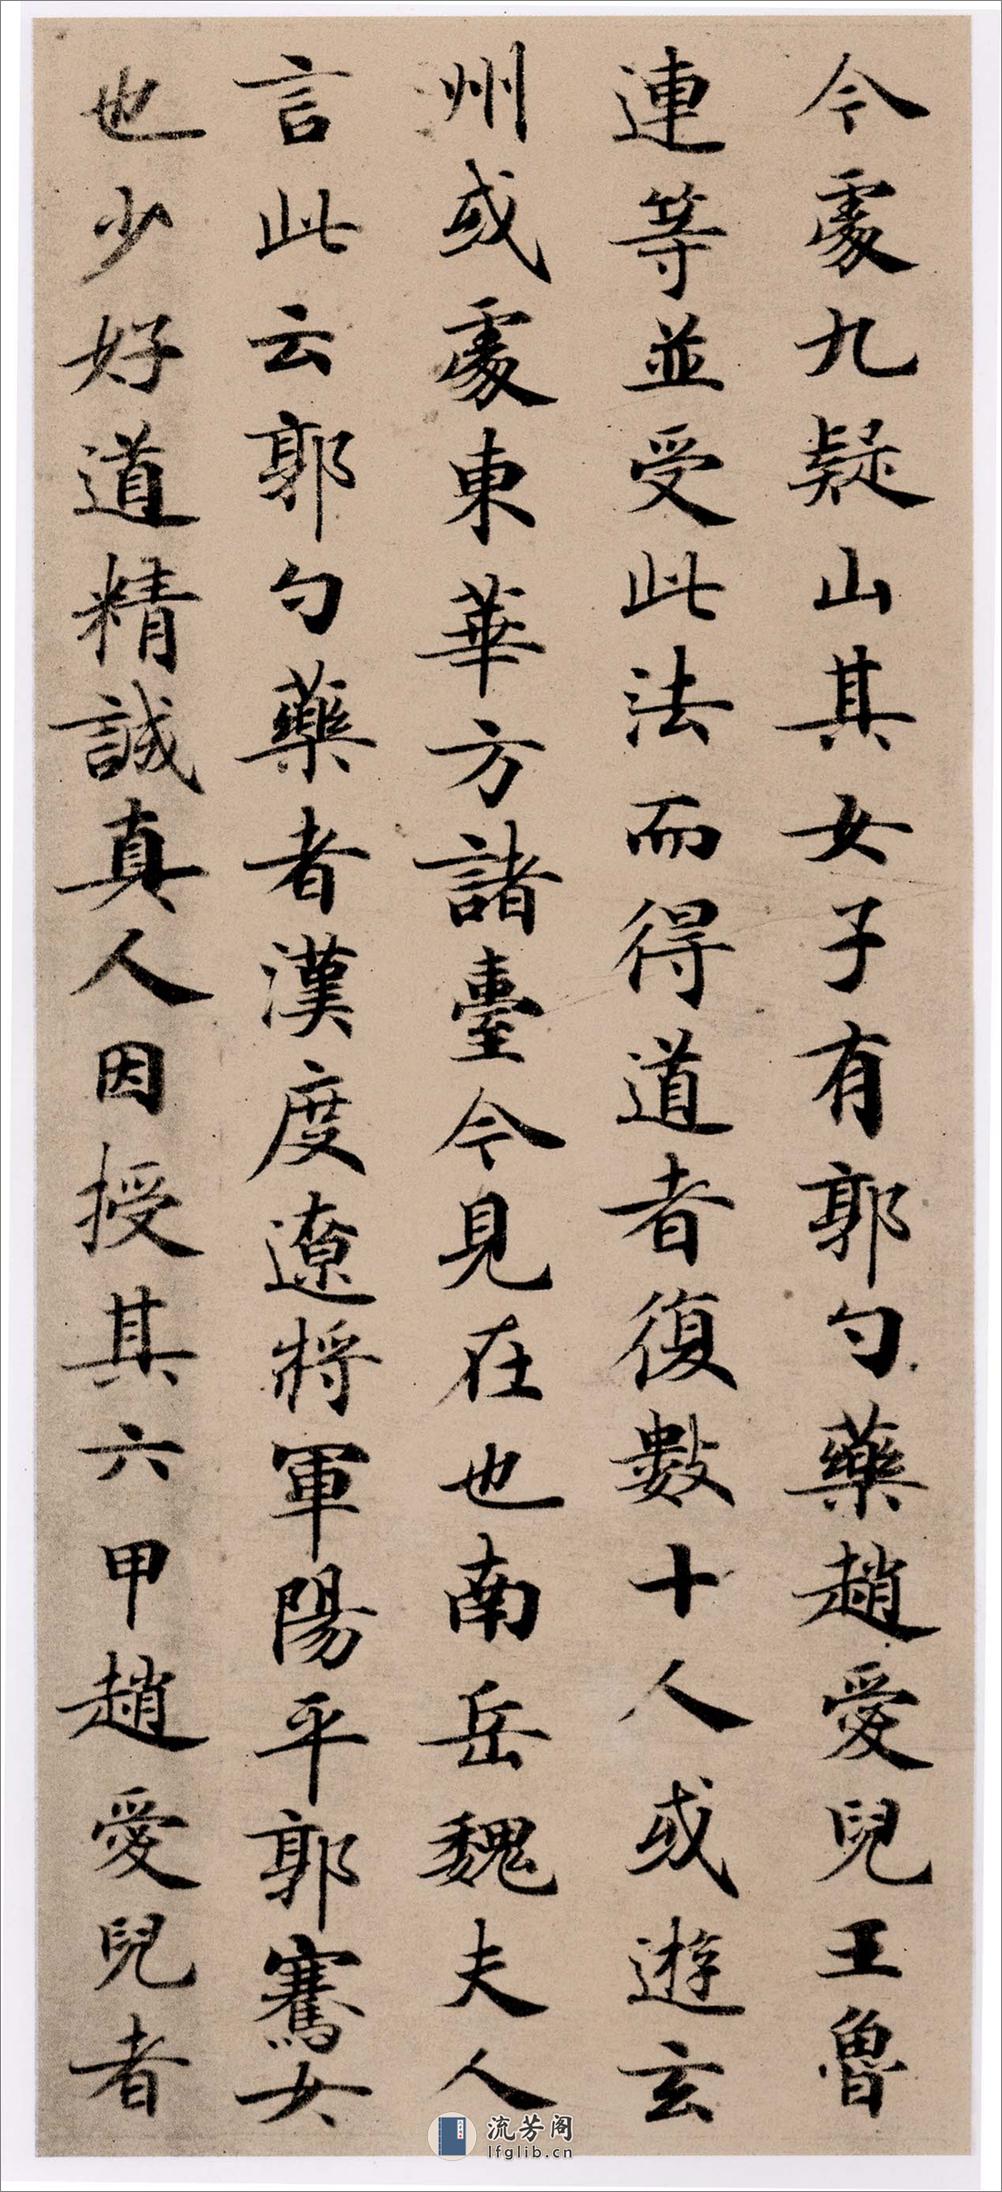 今處九疑山其女子有郭勺藥趙愛兒王魯
連等並受此法而得道者復數十人或遊玄
州或處東華方諸臺今見在也南岳魏夫人
言此云郭勺藥者漢度遼將軍陽平郭騫女
也少好道精誠真人因授其六甲趙愛兒者
流芳阁
lfglib.cn